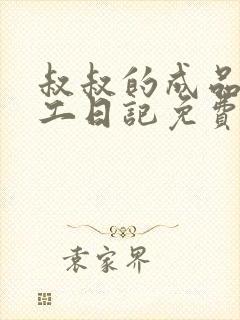 叔叔的成品
工日記免費
袁家界